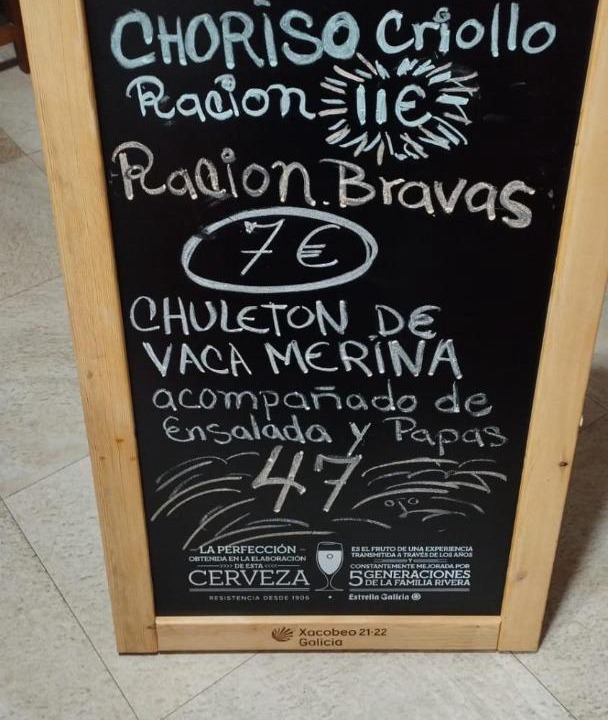 CHORISO Criollo
Racion 11€
Racion. Bravas
7 €
CHULETON DE
VACA MERINA
acompañado de
Ensalada y Papas
47
ojo
LA PERFECCIÓN
OBTENIDA EN LA ELABORACIÓN
DE ESTA
CERVEZA
RESISTENCIA DESDE 1906
ES EL FRUTO DE UNA EXPERIENCIA
TRANSMITIDA A TRAVÉS DE LOS AÑOS
Y
CONSTANTEMENTE MEJORADA POR
5 GENERACIONES
DE LA FAMILIA RIVERA
Estrella Galicia
Xacobeo 21·22
Galicia